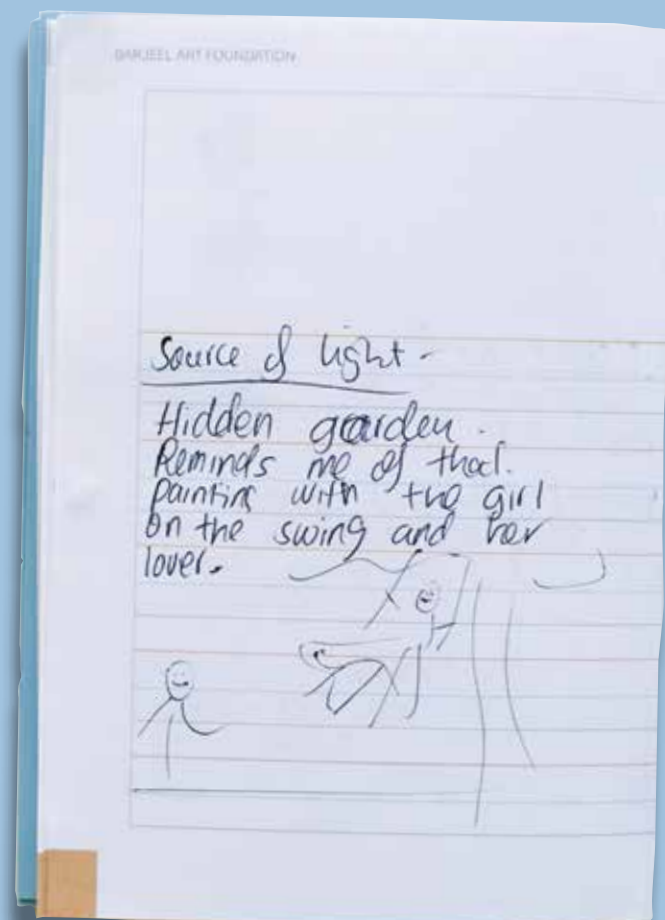 BARJEEL ART FOUNDATION
Source of light -
Hidden garden.
Reminds me of that.
painting with the girl
on the swing and her
lover.